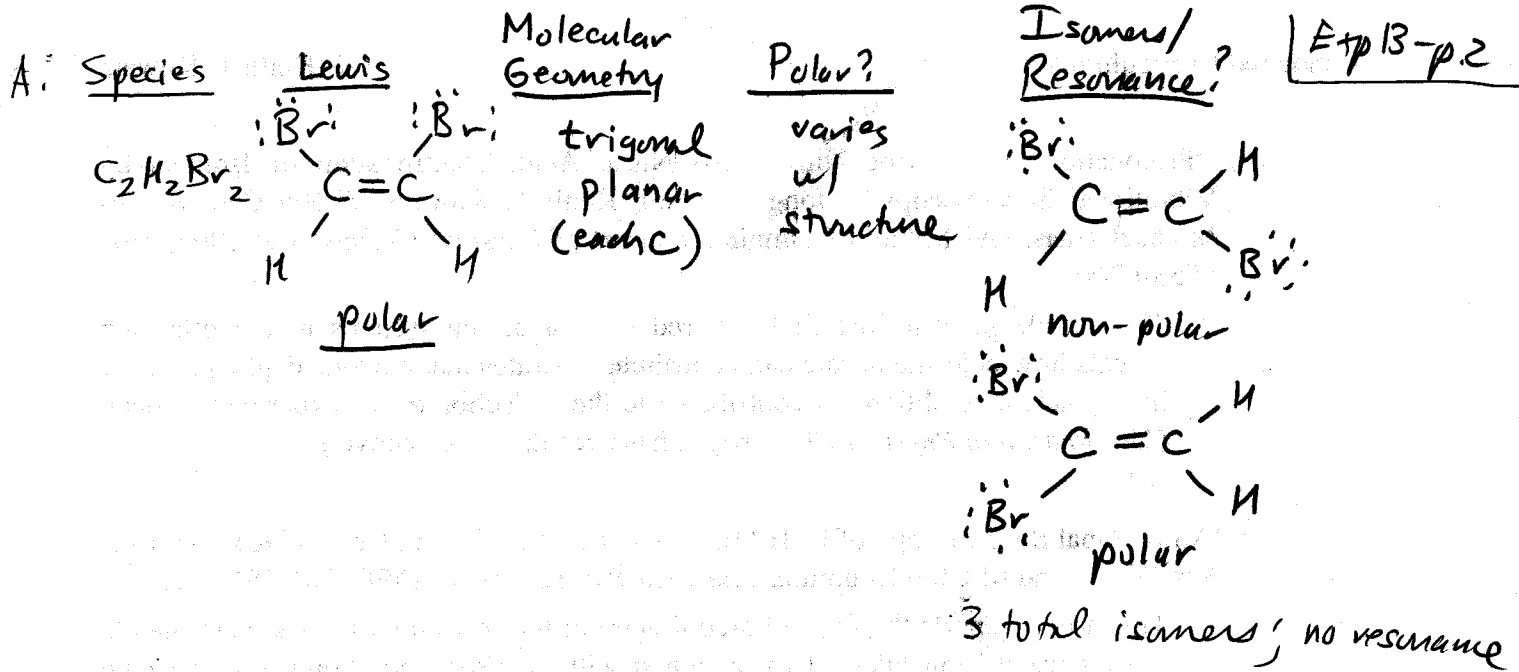 A: Species Lewis Molecular Geometry Polar? Isomers/ Resonance? Exp 13-p.2
C2H2Br2
:Br: :Br:
C=C
H H
polar
trigonal
planar
(each C)
varies
w/
structure
:Br: H
C=C
H Br:
non-polar
:Br: H
C=C
:Br H
polar
3 total isomers; no resonance